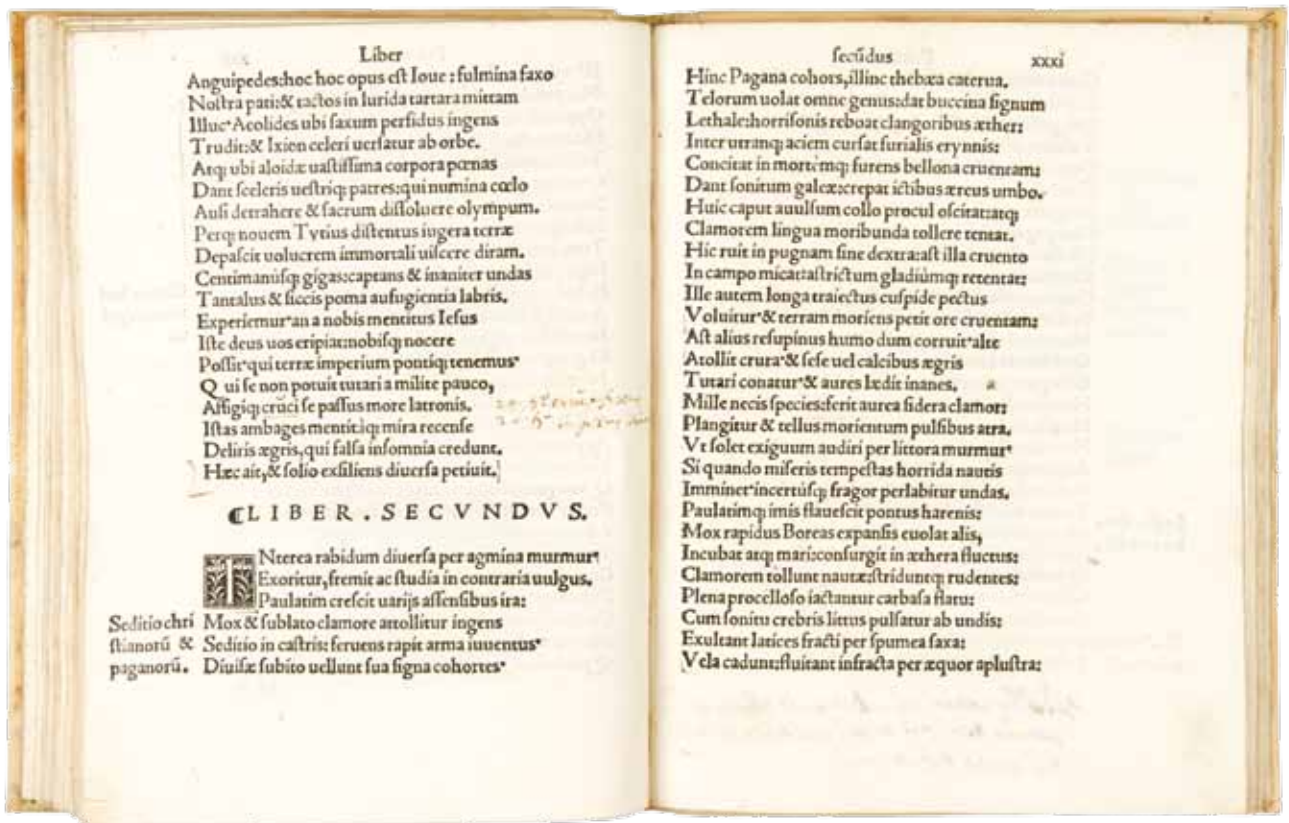 Liber
Anguipedes:hoc hoc opus eſt Ioue : fulmina ſaxo
Noſtra pati:& tactos in lurida tartara mittam
Illuc·Aeolides ubi ſaxum perfidus ingens
Trudit:& Ixien celeri uerſatur ab orbe.
Atqꝫ ubi aloidæ uaſtiſſima corpora pœnas
Dant ſceleris ueſtriqꝫ patres:qui numina cœlo
Auſi detrahere & ſacrum diſſoluere olympum.
Perqꝫ nouem Tytius diſtentus iugera terræ
Depaſcit uolucrem immortali uiſcere diram.
Centimanúſqꝫ gigas:captans & inaniter undas
Tantalus & ſiccis poma aufugientia labris.
Experiemur·an a nobis mentitus Ieſus
Iſte deus uos eripiat:nobiſqꝫ nocere
Poſſit·qui terræ imperium pontiqꝫ tenemus·
Q ui ſe non potuit tutari a milite pauco,
Affigiqꝫ crúci ſe paſſus more latronis.
Iſtas ambages mentitáqꝫ mira recenſe
Deliris ægris,qui falſa inſomnia credunt.
Hæc ait,& ſolio exſiliens diuerſa petiuit.
⸿LIBER . SECVNDVS.
INterea rabidum diuerſa per agmina murmur·
Exoritur,fremit ac ſtudia in contraria uulgus.
Paulatim creſcit uarijs aſſenſibus ira:
Mox & ſublato clamore attollitur ingens
Seditio in caſtris:feruens rapit arma iuuentus·
Diuiſæ ſubito uellunt ſua ſigna cohortes·
Seditio chri
ſtianorũ &
paganorũ.
ſecũdus
xxxi
Hinc Pagana cohors,illinc thebæa caterua.
Telorum uolat omne genus:dat buccina ſignum
Lethale:horriſonis reboat clangoribus æther:
Inter utranqꝫ aciem curſat furialis erynnis:
Concitat in mortémqꝫ furens bellona cruentam:
Dant ſonitum galeæ:crepat ictibus æreus umbo.
Huic caput auulſum collo procul oſcitat:atqꝫ
Clamorem lingua moribunda tollere tentat.
Hic ruit in pugnam ſine dextra:aſt illa cruento
In campo micat:aſtrictum gladiúmqꝫ retentat:
Ille autem longa traiectus cuſpide pectus
Voluitur·& terram moriens petit ore cruentam:
Aſt alius reſupinus humo dum corruit·alte
Atollit crura·& ſeſe uel calcibus ægris
Tutari conatur·& aures lædit inanes.
Mille necis ſpecies:ferit aurea ſidera clamor:
Plangitur & tellus morientum pulſibus atra.
Vt ſolet exiguum audiri per littora murmur·
Si quando miſeris tempeſtas horrida nautis
Imminet·incertúſqꝫ fragor perlabitur undas.
Paulatimqꝫ imis flaueſcit pontus harenis:
Mox rapidus Boreas expanſis euolat alis,
Incubat atqꝫ mari:conſurgit in æthera fluctus:
Clamorem tollunt nautæ:ſtriduntqꝫ rudentes:
Plena procelloſo iactantur carbaſa flatu:
Cum ſonitu crebris littus pulſatur ab undis:
Exultant latices fracti per ſpumea ſaxa:
Vela cadunt:fluitant infracta per æquor apluſtra: